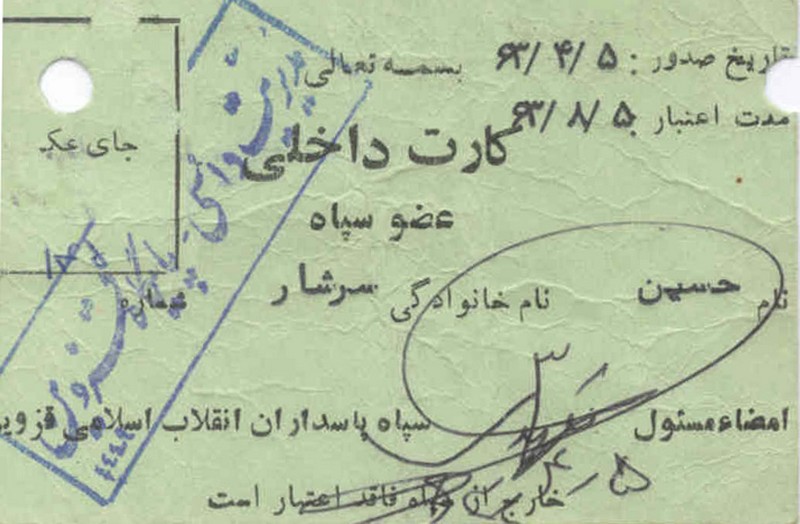 بسمه تعالی
تاریخ صدور : ۶۳/۴/۵
مدت اعتبار ۶۳/۸/۵
کارت داخلی
جای عکـ
عضو سپاه
نام حسین نام خانوادگی سرشار شماره
امضاء مسئول سپاه پاسداران انقلاب اسلامی قزوین
خارج از سپاه فاقد اعتبار است